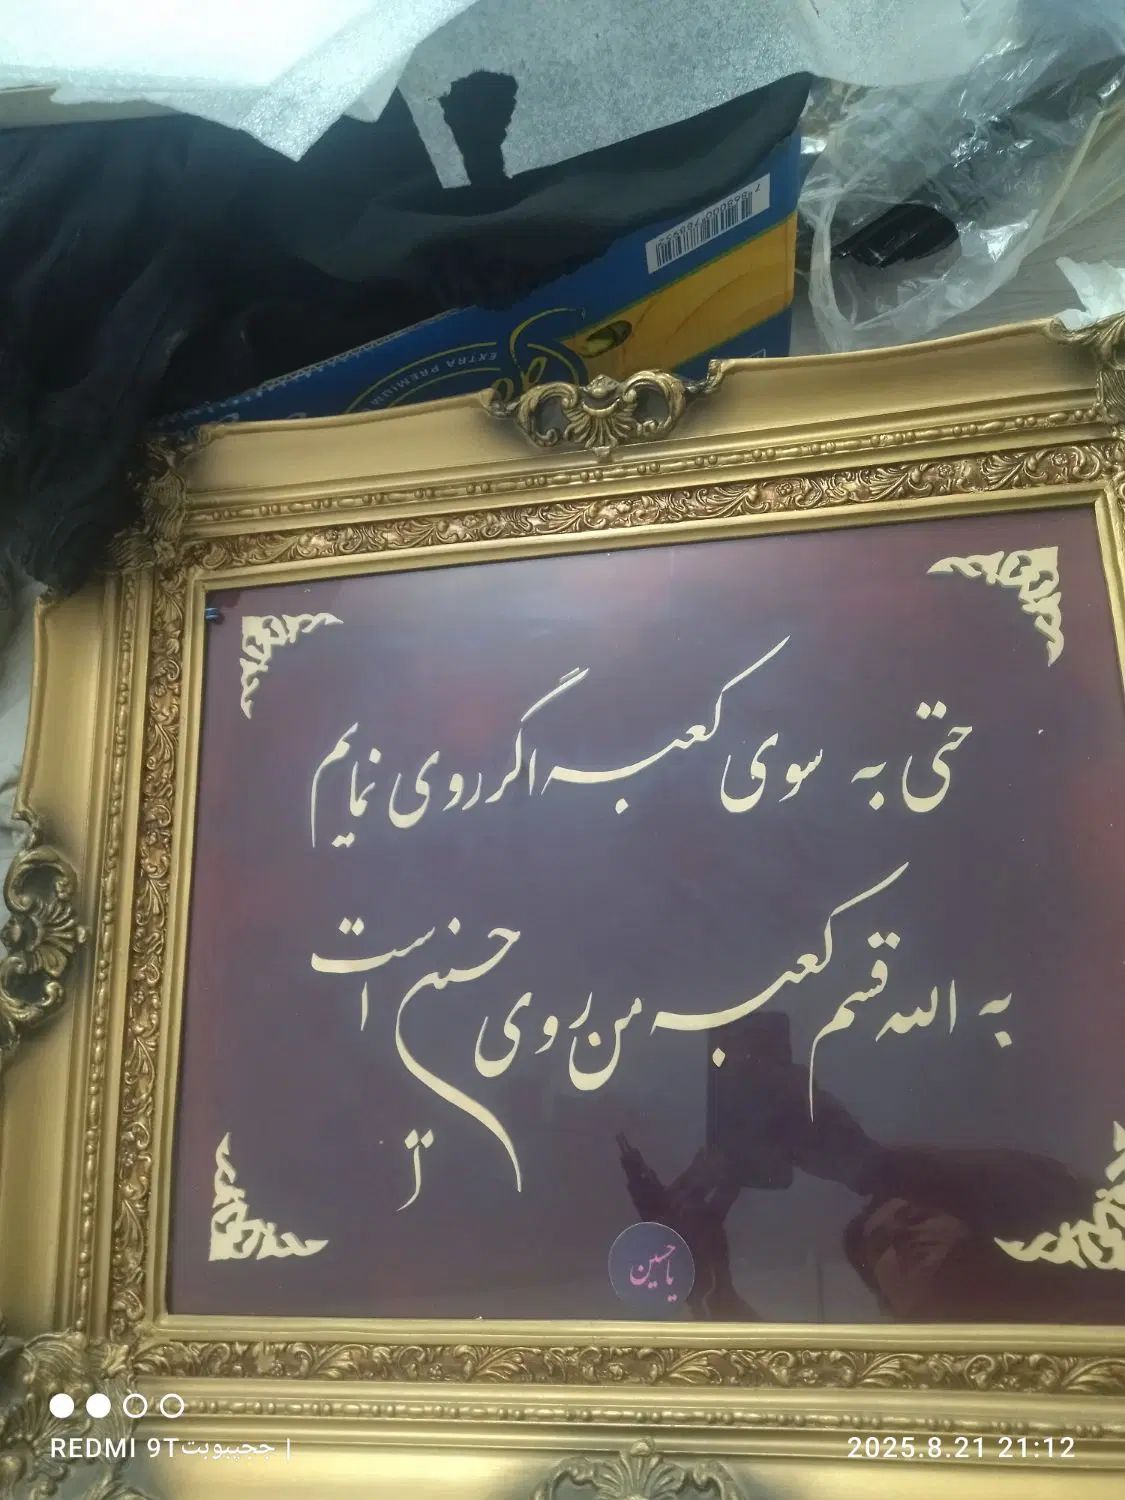 EXTRA PREMIUM
حتی به سوی کعبه اگر روی نمایم
به الله قسم کعبه من روی حسین است
یا حسین
REDMI 9T ججیبوبت |
2025.8.21 21:12